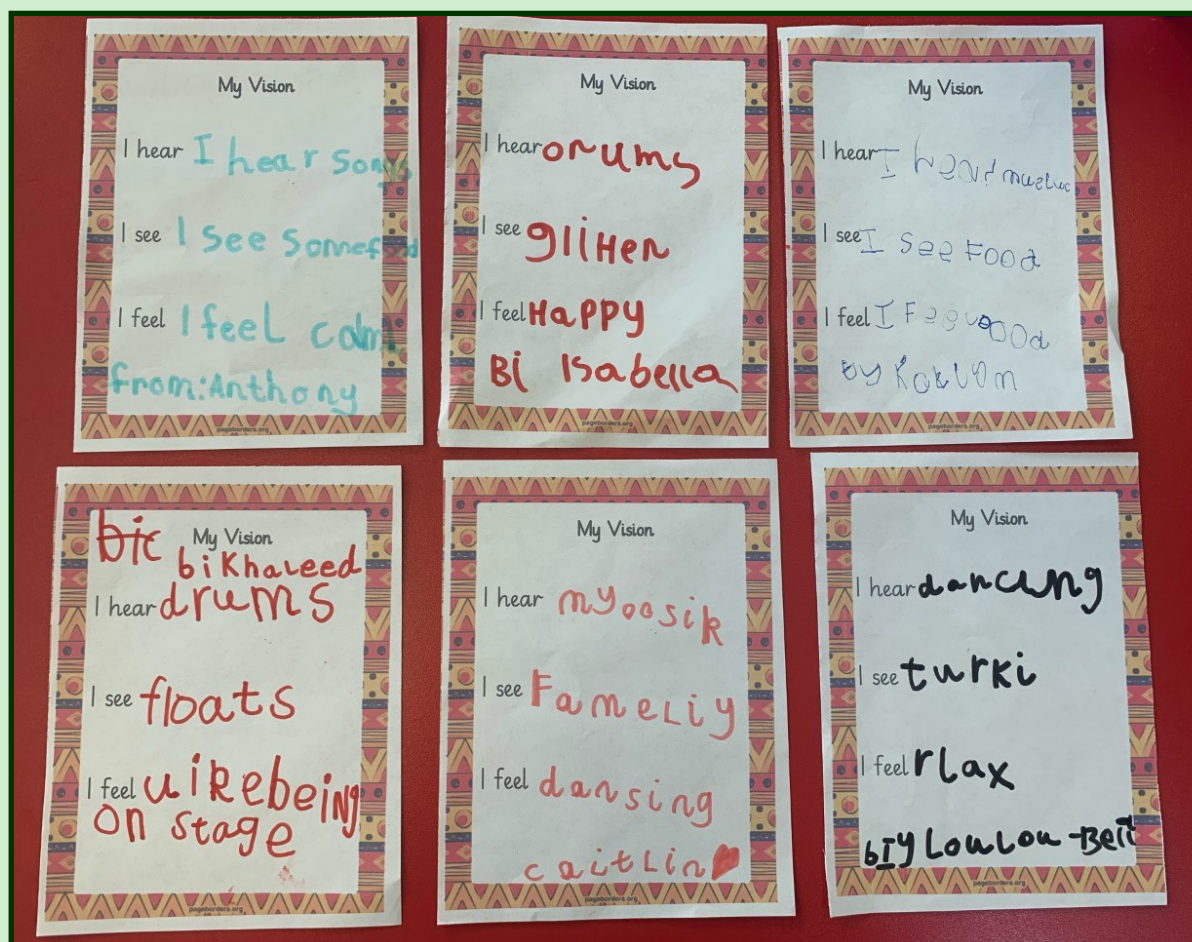 My Vision
I hear I hear songs
I see I see somefood
I feel I feel calm
from: Anthony
pageborders.org
My Vision
I hear drums
I see glitter
I feel Happy
Bi Isabella
pageborders.org
My Vision
I hear I hear
I see I see Food
I feel I
by
pageborders.org
bic My Vision
bi Khaleed
I hear drums
I see floats
I feel likebeing
on stage
pageborders.org
My Vision
I hear myoosik
I see Fameliy
I feel dansing
caitlin
pageborders.org
My Vision
I hear dancing
I see turki
I feel rlax
bIy LouLou-Bell
pageborders.org